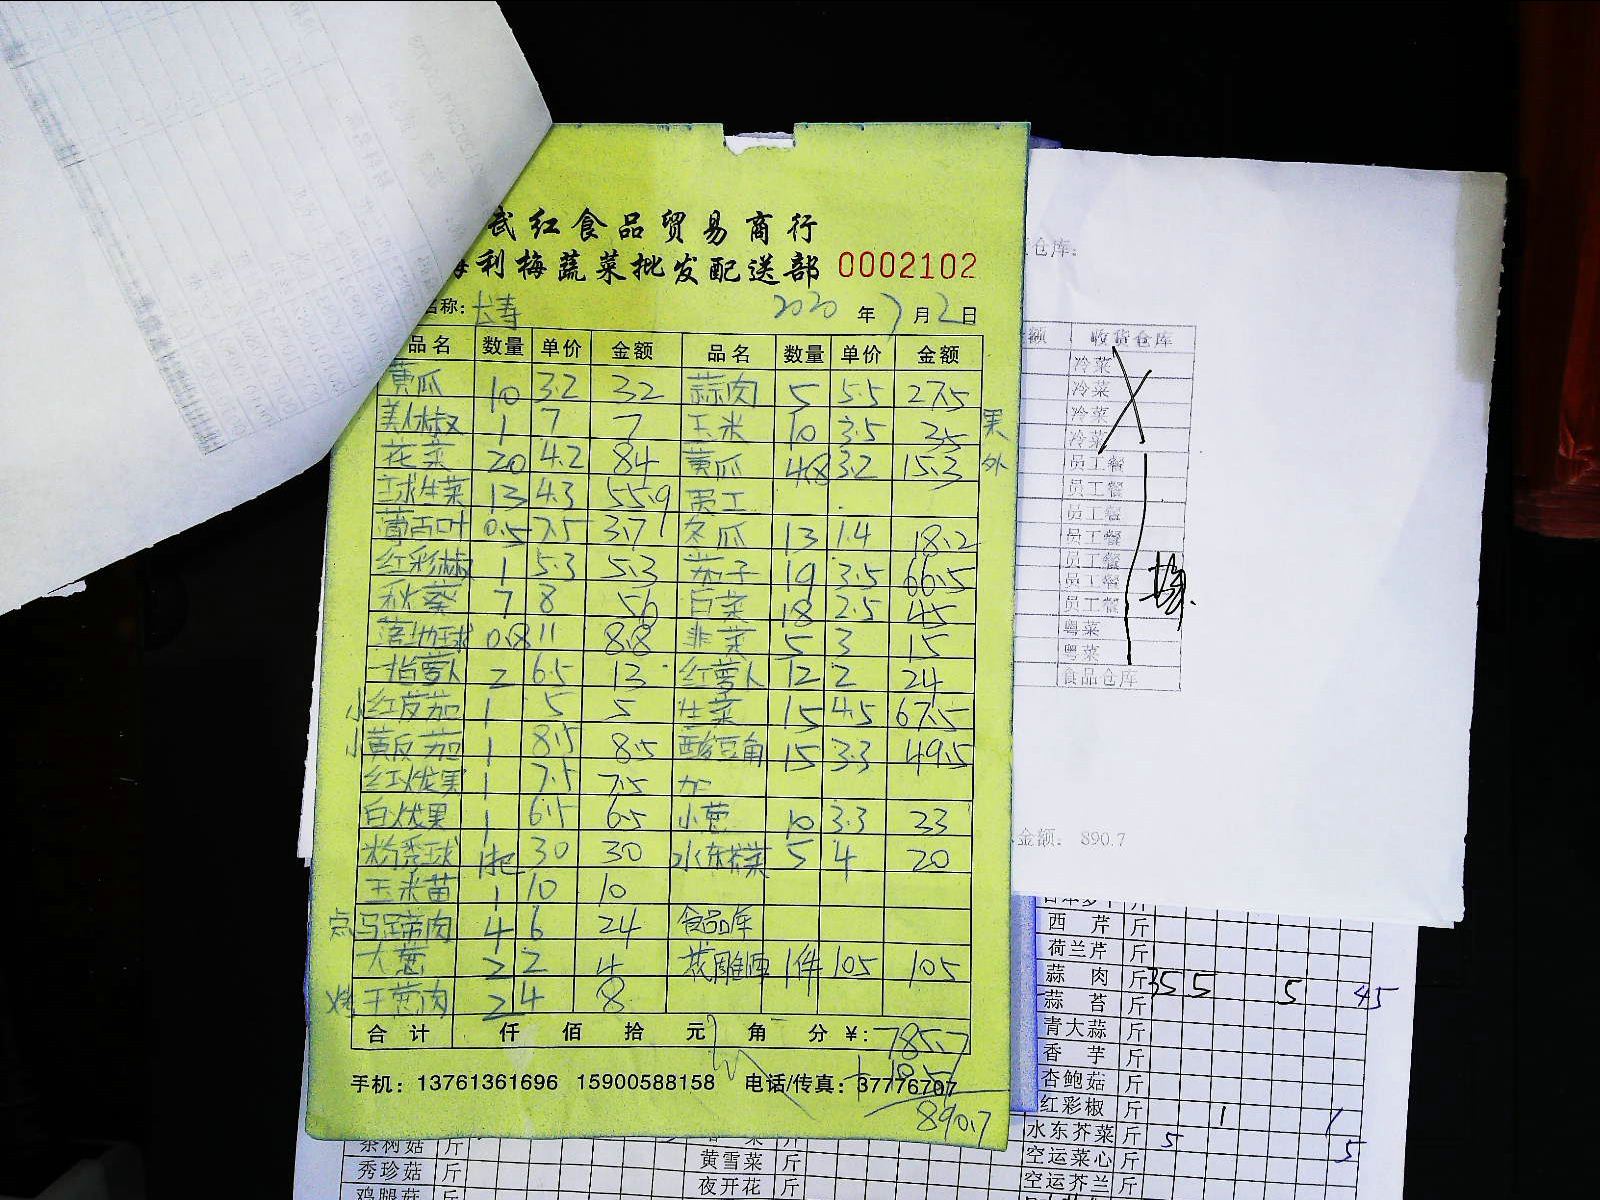 武红食品贸易商行
海利梅蔬菜批发配送部 0002102
名称: 长寿 2020 年 7 月 2 日
品名 数量 单价 金额 品名 数量 单价 金额
黄瓜 10 3.2 32 蒜肉 5 5.5 27.5
美人椒 1 7 7 玉米 10 3.5 35 果
花菜 20 4.2 84 黄瓜 4.8 3.2 15.3 外
球生菜 13 4.3 55.9 员工
薄百叶 0.5 7.5 3.7 冬瓜 13 1.4 18.2
红彩椒 1 5.3 5.3 茄子 19 3.5 66.5
秋葵 7 8 56 白菜 18 2.5 45
0.8 11 8.8 韭菜 5 3 15
一指萝卜 2 6.5 13 红萝卜 12 2 24
小红茄 1 5 5 生菜 15 4.5 67.5
小黄茄 1 8.5 8.5 酸豆角 15 3.3 49.5
红火龙果 1 7.5 7.5 加
白火龙果 1 6.5 6.5 小葱 10 3.3 33
粉秀球 1把 30 30 水东芥菜 5 4 20
玉米苗 1 10 10
点 马蹄肉 4 6 24 食品库
大葱 2 2 4 花雕酒 1件 105 105
烤 干葱肉 2 4 8
合计 仟 佰 拾 元 角 分 ¥: 785.7
手机: 13761361696 15900588158 电话/传真: 37776707
890.7
仓库:
额 收货仓库
冷菜
冷菜
冷菜
冷菜
员工餐
员工餐
员工餐
员工餐
员工餐
员工餐
员工餐
粤菜
粤菜
食品仓库
金额: 890.7
西芹 斤
荷兰芹 斤
蒜肉 斤 35 5 5 45
蒜苔 斤
青大蒜 斤
香芋 斤
杏鲍菇 斤
红彩椒 斤 1 1
水东芥菜 斤 5 5
空运菜心 斤
空运芥兰 斤
茶树菇 斤
秀珍菇 斤
鸡腿菇 斤
黄雪菜 斤
夜开花 斤